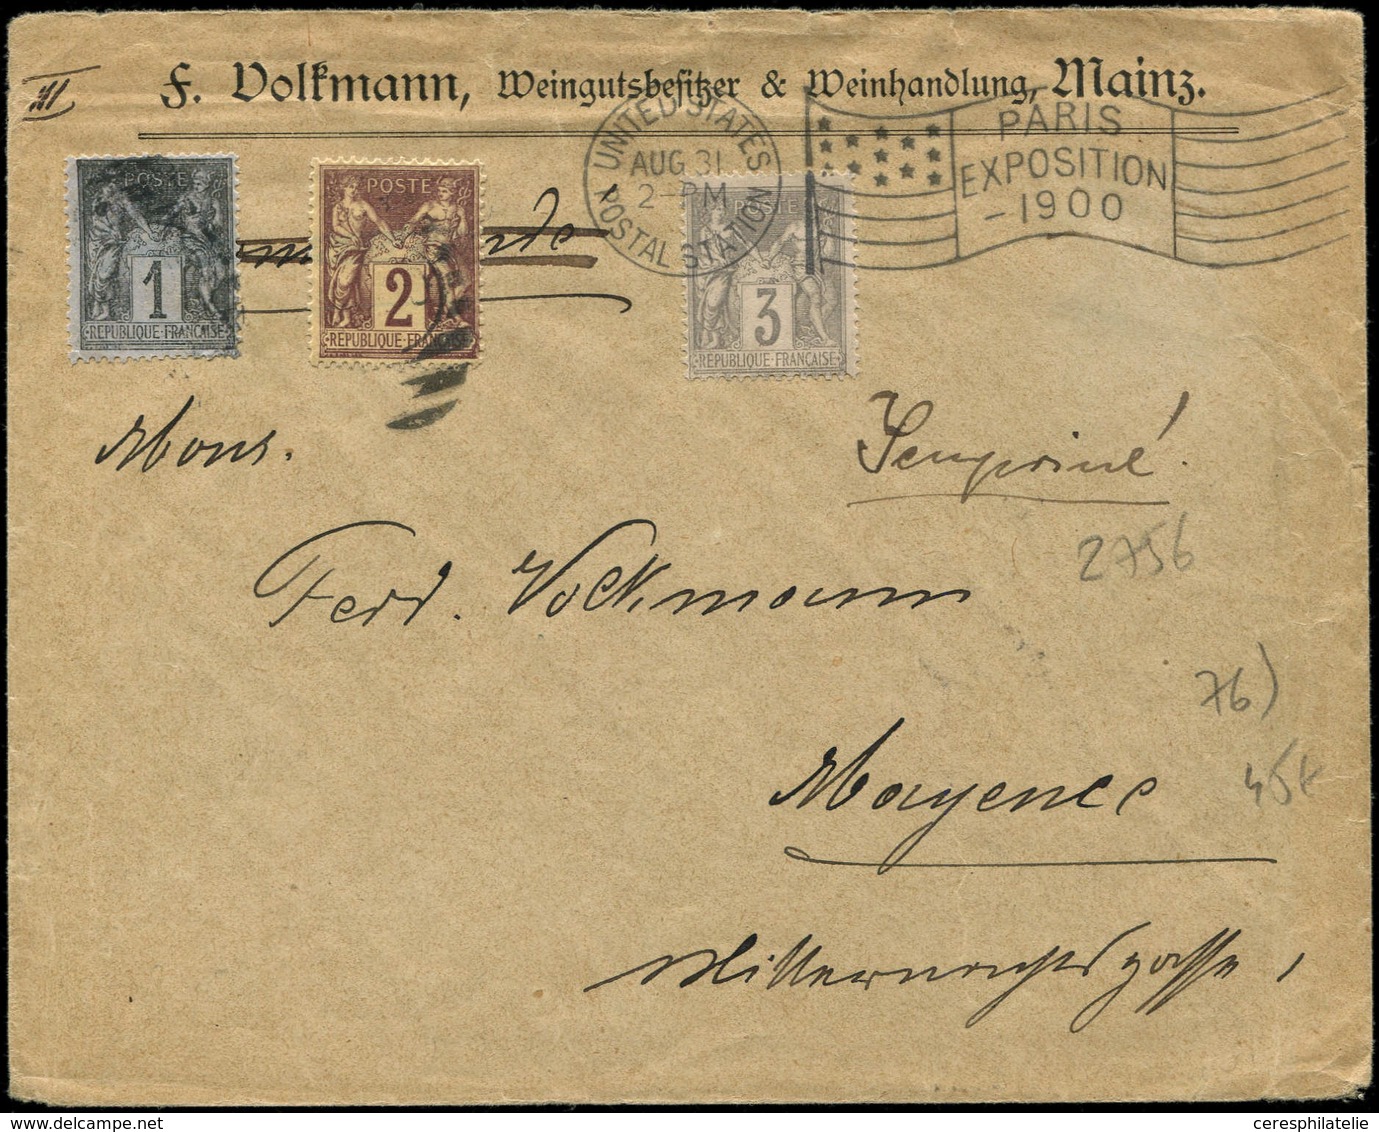 F. Volkmann, Weingutsbesitzer & Weinhandlung, Mainz.
UNITED STATES
AUG 31
2-PM
POSTAL STATION
PARIS
EXPOSITION
-1900
POSTE
1
REPUBLIQUE FRANÇAISE
POSTE
2
REPUBLIQUE FRANÇAISE
POSTE
3
REPUBLIQUE FRANÇAISE
Mons.
Imprimé.
2756
Ferd. Volkmann
76)
Mayence
Mitternachtsgasse,
ceresphilatelie.com